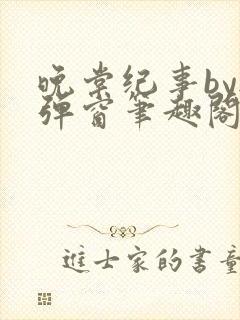 晚棠纪事by
弹窗笔趣阁
进士家的书童